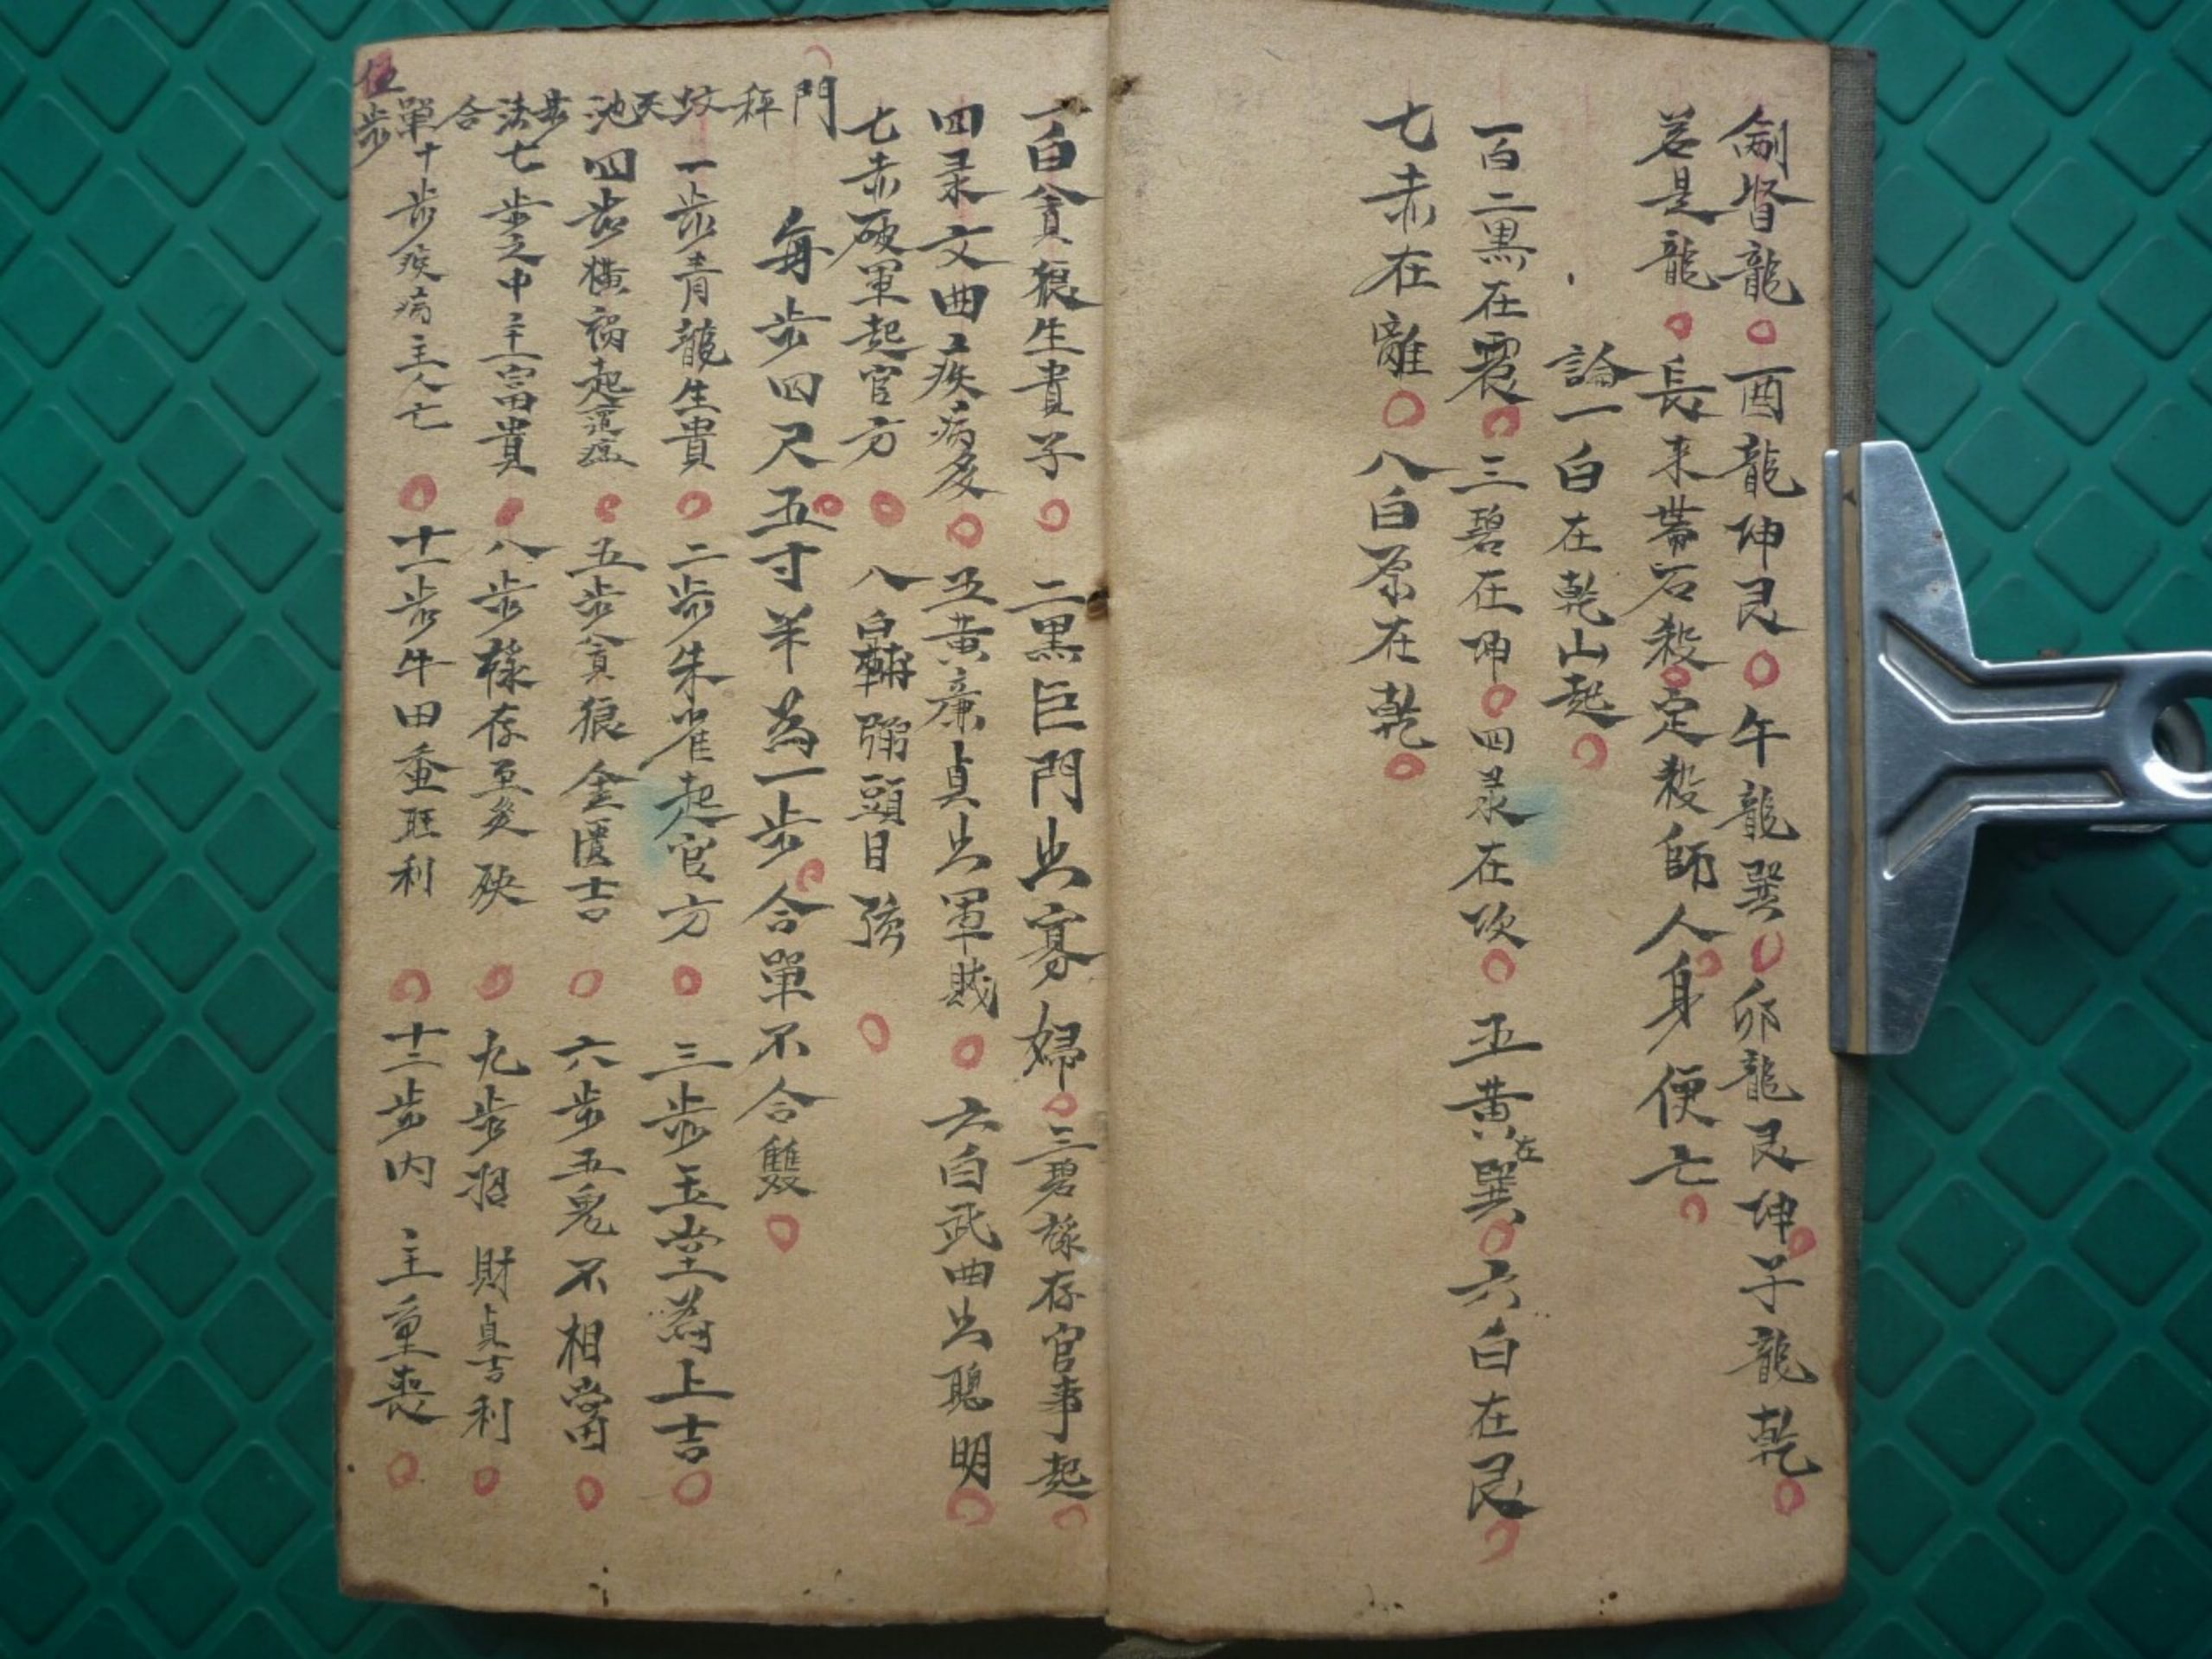 督龍○酉龍坤艮○午龍巽○卯龍艮坤○子龍乾○
若是龍○長来帶石殺○定殺師人身便亡○
論一白在乾山起○
一百二黒在震○三碧在坤○四录在坎○五黄在巽○六白在艮○
七赤在離○八白原在乾○
一白貪狼生貴子○二黒巨門出寡婦○三碧祿存官事起○
四录文曲疾病多○五黄廉貞出軍賊○六白武曲出聰明○
七赤破軍起官方○八白輔弼頭目強○
每步四尺五寸羊為一步○合單不合雙○
門秤坟天池步法合單步
一步青龍生貴○二步朱雀起官方○三步玉堂為上吉○
四步橫祸起瘟○五步貪狼金匱吉○六步五鬼不相當○
七步之中主富貴○八步祿存至災殃○九步招財貞吉利○
十步疾病主人亡○十一步牛田蚕旺利○十二步内主重喪○
伍